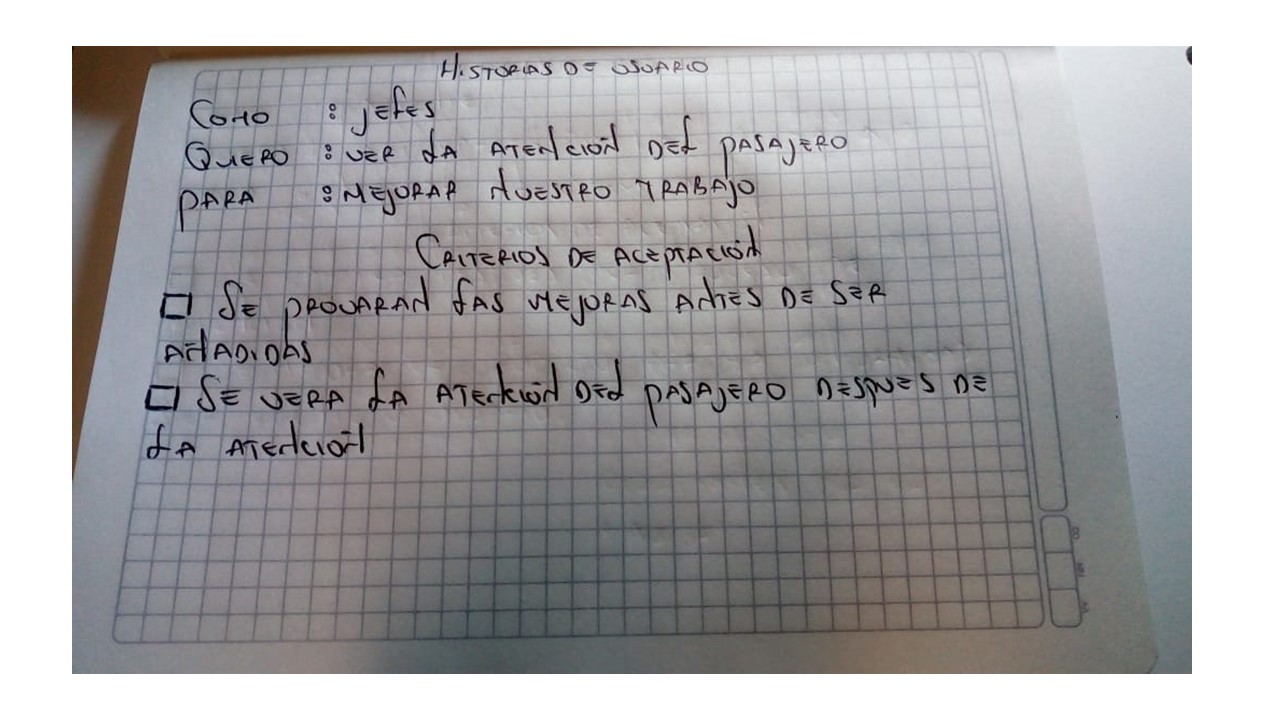 HISTORIAS DE USUARIO
COMO : jefes
QUERO : VER LA ATENCIÓN DEL PASAJERO
PARA : MEJORAR NUESTRO TRABAJO
CRITERIOS DE ACEPTACIÓN
☐ SE PROVARAN LAS MEJORAS ANTES DE SER
AÑADIDAS
☐ SE VERA LA ATENCIÓN DEL PASAJERO DESPUES DE
LA ATENCIÓN